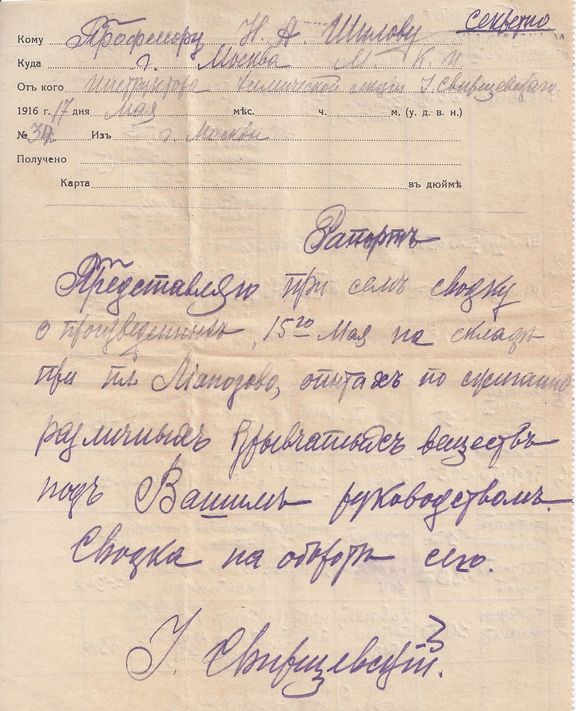 Секретно
Кому Профессору Н. А. Шилову
Куда г. Москва М К И
Отъ кого Инструктора Химической секции І. Свирщевскаго
1916 г. 17 дня Мая мѣс. ч. м. (у. д. в. н.)
№ Изъ г. Москвы
Получено
Карта въ дюймѣ
Рапортъ
Представляю при семъ сводку
о произведенныхъ 15го Мая на складѣ
при пл. опытахъ по сжиганію
различныхъ взрывчатыхъ веществъ
подъ Вашимъ руководствомъ.
Сводка на оборотѣ сего.
І. Свирщевскій.